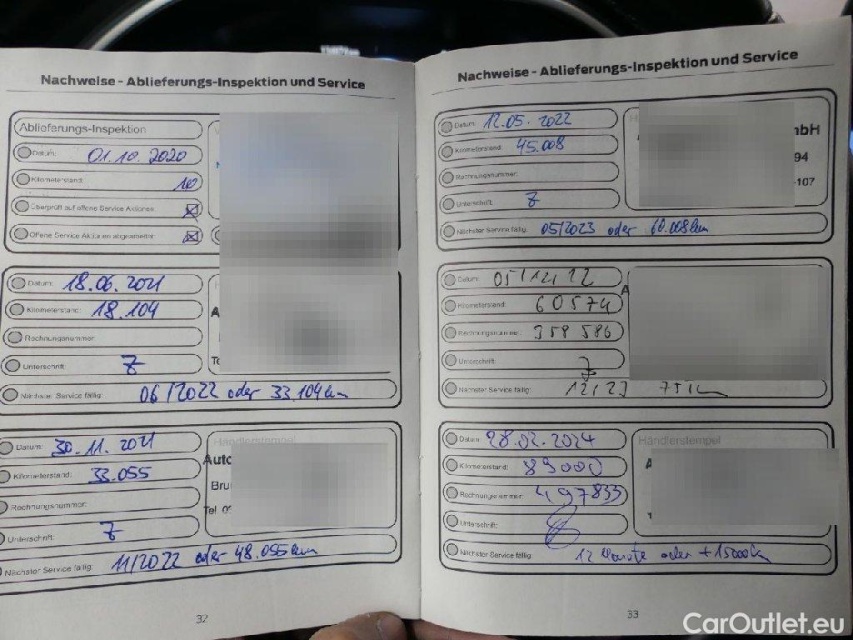 Nachweise - Ablieferungs-Inspektion und Service
Ablieferungs-Inspektion
Datum: 01.10.2020
Kilometerstand: 10
Überprüft auf offene Service Aktionen
Offene Service Aktionen abgearbeitet
Datum: 18.06.2021
Kilometerstand: 18.104
Rechnungsnummer:
Unterschrift:
Nächster Service fällig: 06/2022 oder 33.104km
Datum: 30.11.2021
Kilometerstand: 33.055
Rechnungsnummer:
Unterschrift:
Nächster Service fällig: 11/2022 oder 48.055km
Händlerstempel
Auto
Bru
Tel 0
32
Nachweise - Ablieferungs-Inspektion und Service
Datum: 12.05.2022
Kilometerstand: 45.008
Rechnungsnummer:
Unterschrift:
Nächster Service fällig: 05/2023 oder 60.008km
nbH
94
-107
Datum: 05/12/22
Kilometerstand: 60574
Rechnungsnummer: 358586
Unterschrift:
Nächster Service fällig: 12/23
Datum: 28.02.2024
Kilometerstand: 89000
Rechnungsnummer: 497833
Unterschrift:
Nächster Service fällig: 12 Monate oder +15000km
Händlerstempel
33
CarOutlet.eu